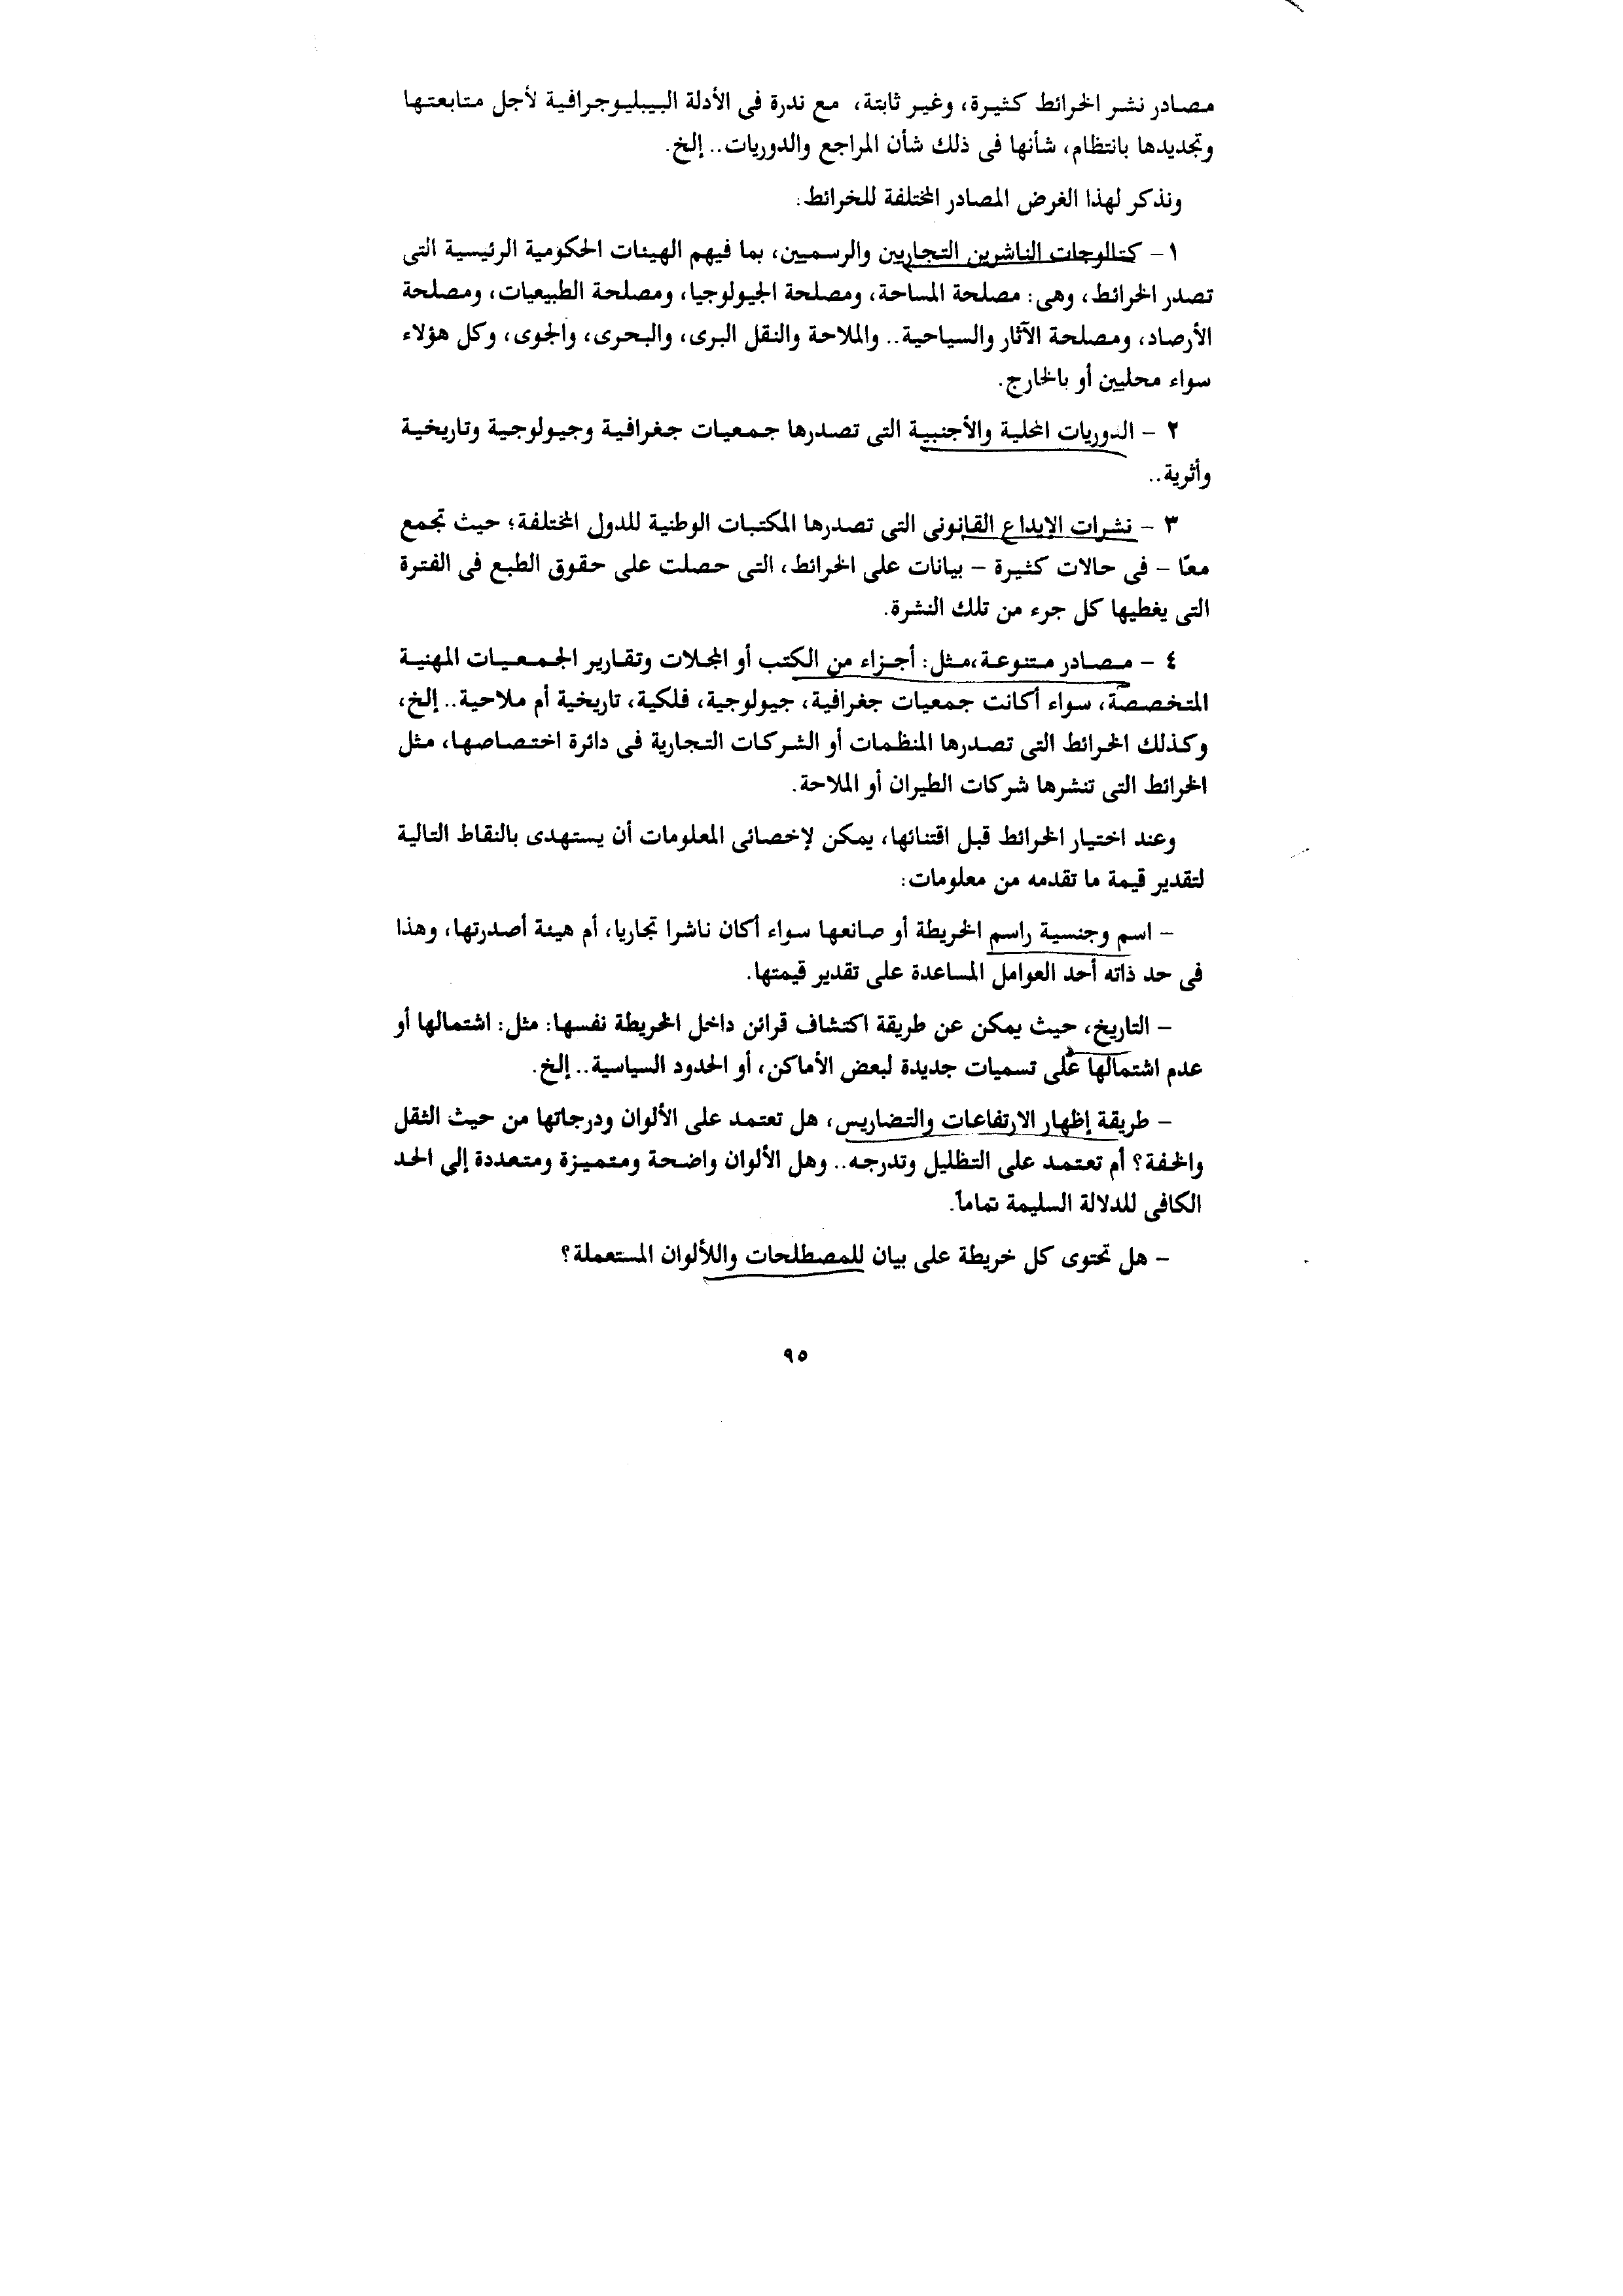 مصادر نشر الخرائط كثيرة، وغير ثابتة، مع ندرة فى الأدلة الببليوجرافية لأجل متابعتها
وتجديدها بانتظام، شأنها فى ذلك شأن المراجع والدوريات.. إلخ.
ونذكر لهذا الغرض المصادر المختلفة للخرائط:
١ – كتالوجات الناشرين التجاريين والرسميين، بما فيهم الهيئات الحكومية الرئيسية التى
تصدر الخرائط، وهى: مصلحة المساحة، ومصلحة الجيولوجيا، ومصلحة الطبيعيات، ومصلحة
الأرصاد، ومصلحة الآثار والسياحية.. والملاحة والنقل البرى، والبحرى، والجوى، وكل هؤلاء
سواء محليين أو بالخارج.
٢ – الدوريات المحلية والأجنبية التى تصدرها جمعيات جغرافية وجيولوجية وتاريخية
وأثرية..
٣ – نشرات الإيداع القانونى التى تصدرها المكتبات الوطنية للدول المختلفة؛ حيث تجمع
معًا – فى حالات كثيرة – بيانات على الخرائط، التى حصلت على حقوق الطبع فى الفترة
التى يغطيها كل جرء من تلك النشرة.
٤ – مصادر متنوعة،مثل: أجزاء من الكتب أو المجلات وتقارير الجمعيات المهنية
المتخصصة، سواء أكانت جمعيات جغرافية، جيولوجية، فلكية، تاريخية أم ملاحية.. إلخ،
وكذلك الخرائط التى تصدرها المنظمات أو الشركات التجارية فى دائرة اختصاصها، مثل
الخرائط التى تنشرها شركات الطيران أو الملاحة.
وعند اختيار الخرائط قبل اقتنائها، يمكن لإخصائى المعلومات أن يستهدى بالنقاط التالية
لتقدير قيمة ما تقدمه من معلومات:
– اسم وجنسية راسم الخريطة أو صانعها سواء أكان ناشرا تجاريا، أم هيئة أصدرتها، وهذا
فى حد ذاته أحد العوامل المساعدة على تقدير قيمتها.
– التاريخ، حيث يمكن عن طريقة اكتشاف قرائن داخل الخريطة نفسها: مثل: اشتمالها أو
عدم اشتمالها على تسميات جديدة لبعض الأماكن، أو الحدود السياسية.. إلخ.
– طريقة إظهار الارتفاعات والتضاريس، هل تعتمد على الألوان ودرجاتها من حيث الثقل
والخفة؟ أم تعتمد على التظليل وتدرجه.. وهل الألوان واضحة ومتميزة ومتعددة إلى الحد
الكافى للدلالة السليمة تماماً.
– هل تحتوى كل خريطة على بيان للمصطلحات واللألوان المستعملة؟
٩٥